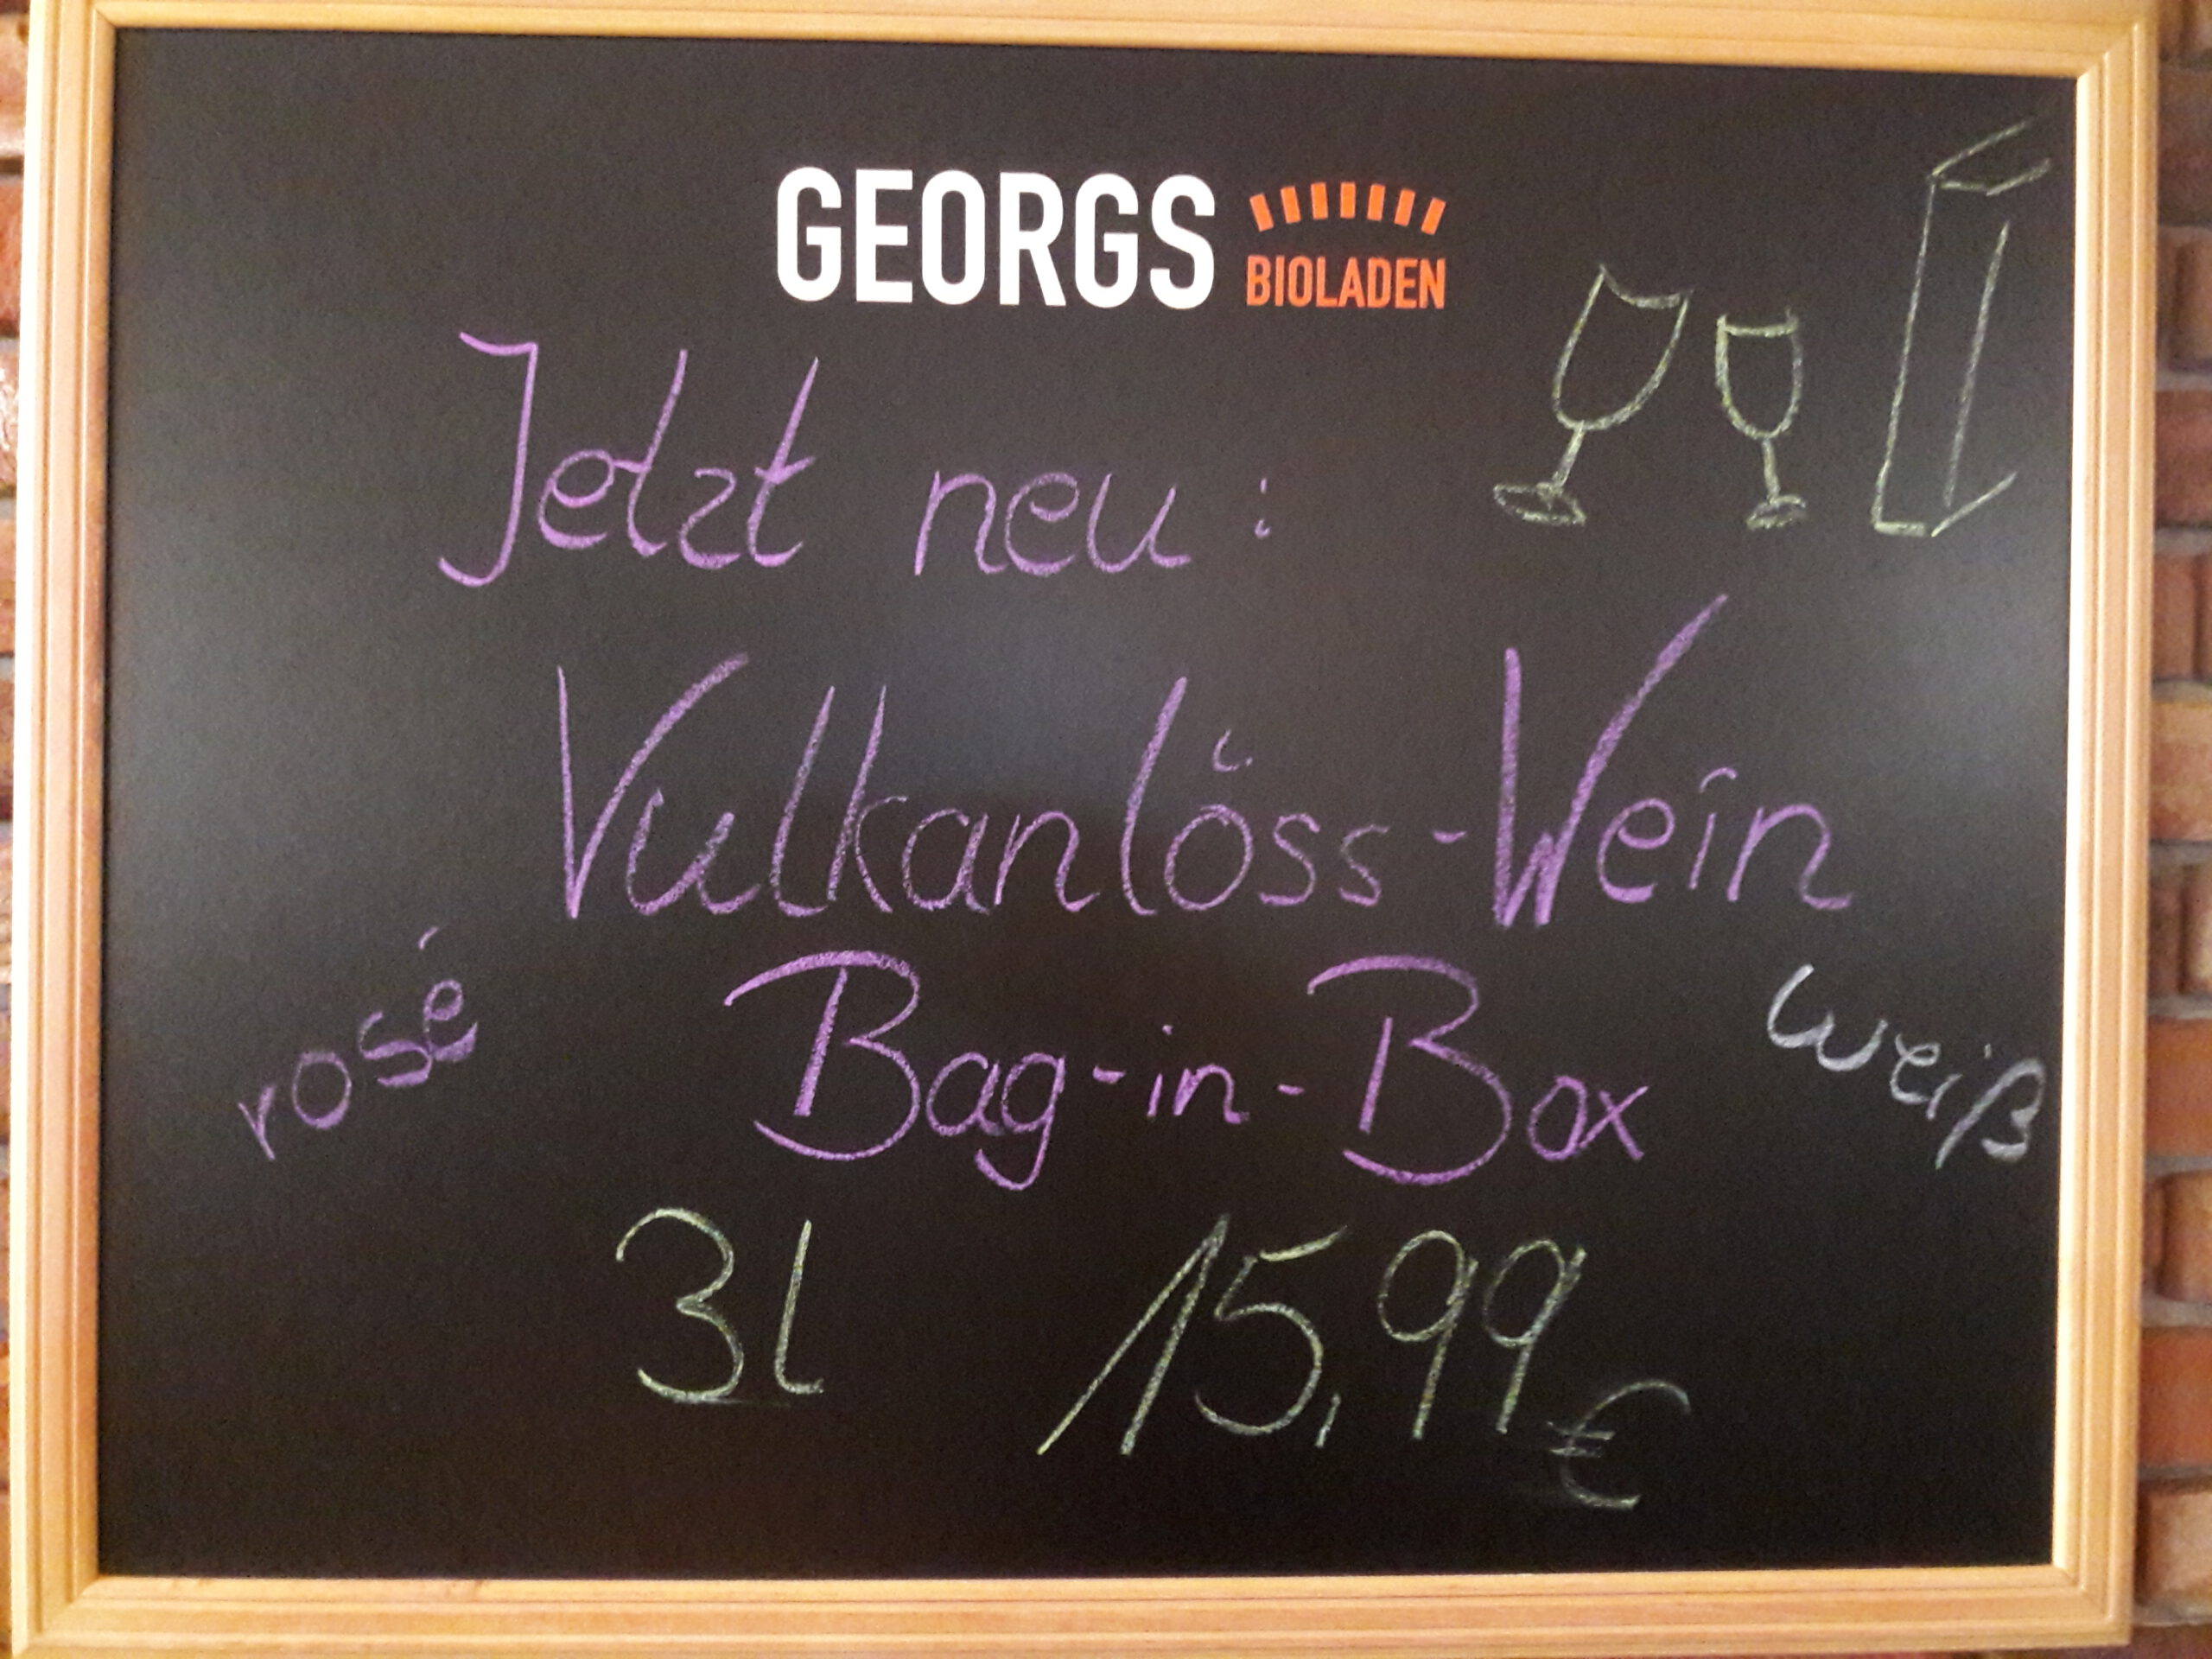 GEORGS BIOLADEN
Jetzt neu:
Vulkanlöss-Wein
rosé
Bag-in-Box
weiß
3l 15,99€